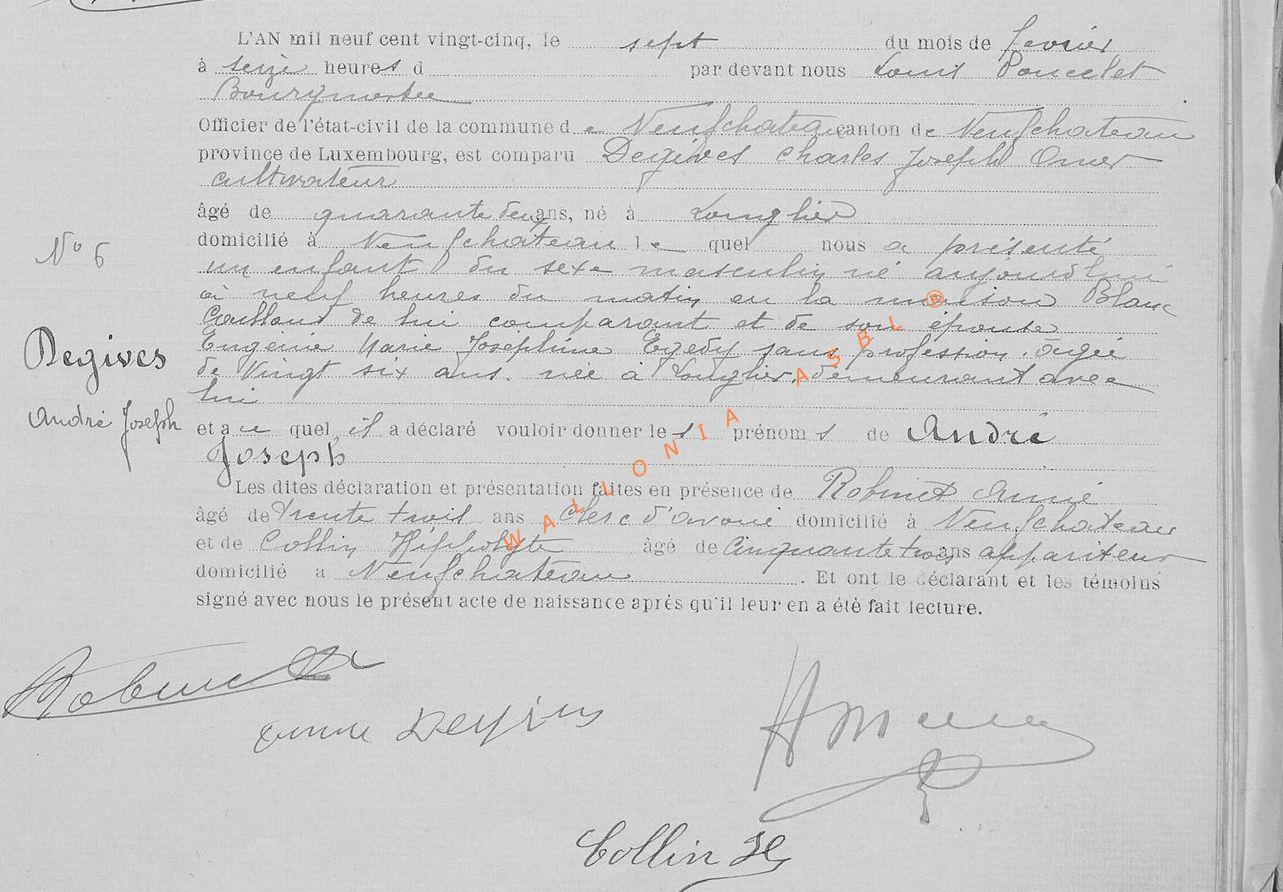 L'AN mil neuf cent vingt-cinq, le sept du mois de fevrier
à seize heures d par devant nous Louis Poncelet
Bourgmestre
Officier de l'état-civil de la commune de Neufchateau canton de Neufchateau
province de Luxembourg, est comparu Degives Charles Joseph Omer
cultivateur
âgé de quarante deux ans, né à Longlier
domicilié à Neufchateau lequel nous a présenté
un enfant du sexe masculin né aujourdhui
à neuf heures du matin en la maison Blanc
Caillou de lui comparant et de son épouse
Eugenie Marie Josephine sans profession. âgée
de Vingt six ans. née à Longlier, demeurant avec
lui
et auquel il a déclaré vouloir donner les prénoms de André
Joseph
Les dites déclaration et présentation faites en présence de Robinet Aimé
âgé de trente trois ans Clerc d'avoué domicilié à Neufchateau
et de Collin Hippolyte âgé de Cinquante trois ans appariteur
domicilié à Neufchateau. Et ont le déclarant et les témoins
signé avec nous le présent acte de naissance après qu'il leur en a été fait lecture.
N° 6
Degives
André Joseph
WALLONIA ASBL ®
Robinet A
Degives
Collin H